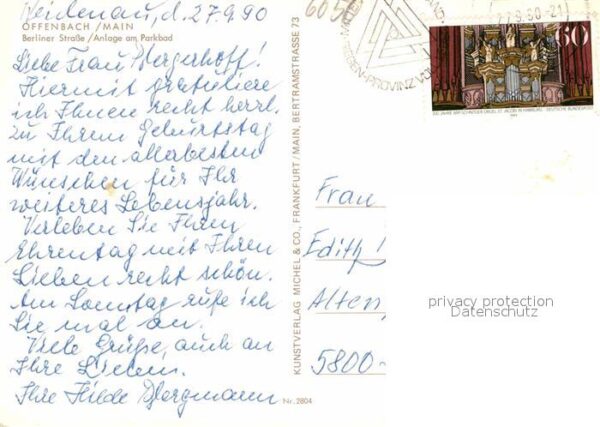 Weidenau, d. 27.9.90
OFFENBACH / MAIN
Berliner Straße / Anlage am Parkbad
Liebe Frau Bergerhoff!
Hiermit gratuliere
ich Ihnen recht herzl.
zu Ihrem Geburtstag
mit den allerbesten
Wünschen für Ihr
weiteres Lebensjahr.
Verleben Sie Ihren
Ehrentag mit Ihren
Lieben recht schön.
Am Sonntag rufe ich
Sie mal an.
Viele Grüße, auch an
Ihre Lieben.
Ihre Hilde Bergmann
Nr. 2804
KUNSTVERLAG MICHEL & CO., FRANKFURT / MAIN, BERTRAMSTRASSE 73
60
DEUTSCHE BUNDESPOST
Frau
Edith
Alten
5800-
privacy protection
Datenschutz